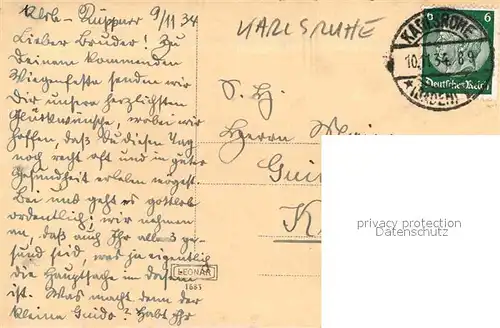 Klrh-Rüppurr 9/11 34
Lieber Bruder! Zu
Deinem kommenden
Wiegenfeste senden wir
Dir unsere herzlichsten
Glückwünsche, wobei wir
hoffen, daß Du diesen Tag
noch recht oft und in guter
Gesundheit erleben mögest.
Bei uns geht es gottlob
ordentlich; wir nehmen
an, daß auch Ihr alles ge-
sund seid, was ja eigentlich
die Hauptsache im
ist. Was macht denn der
kleine Guido? Habt Ihr
KARLSRUHE
KARLSRUHE
10.11.34. 8-9
(BADEN)
6
Deutsches Reich
S. Hg.
Herrn
Gui
K
LEONAR
1683
privacy protection
oldthing.de